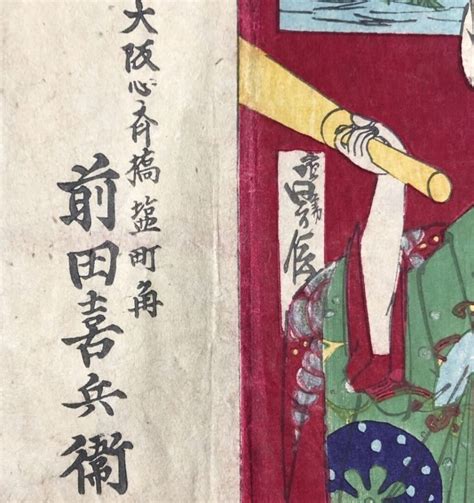 大阪心斉橋塩町角
前田喜兵衛